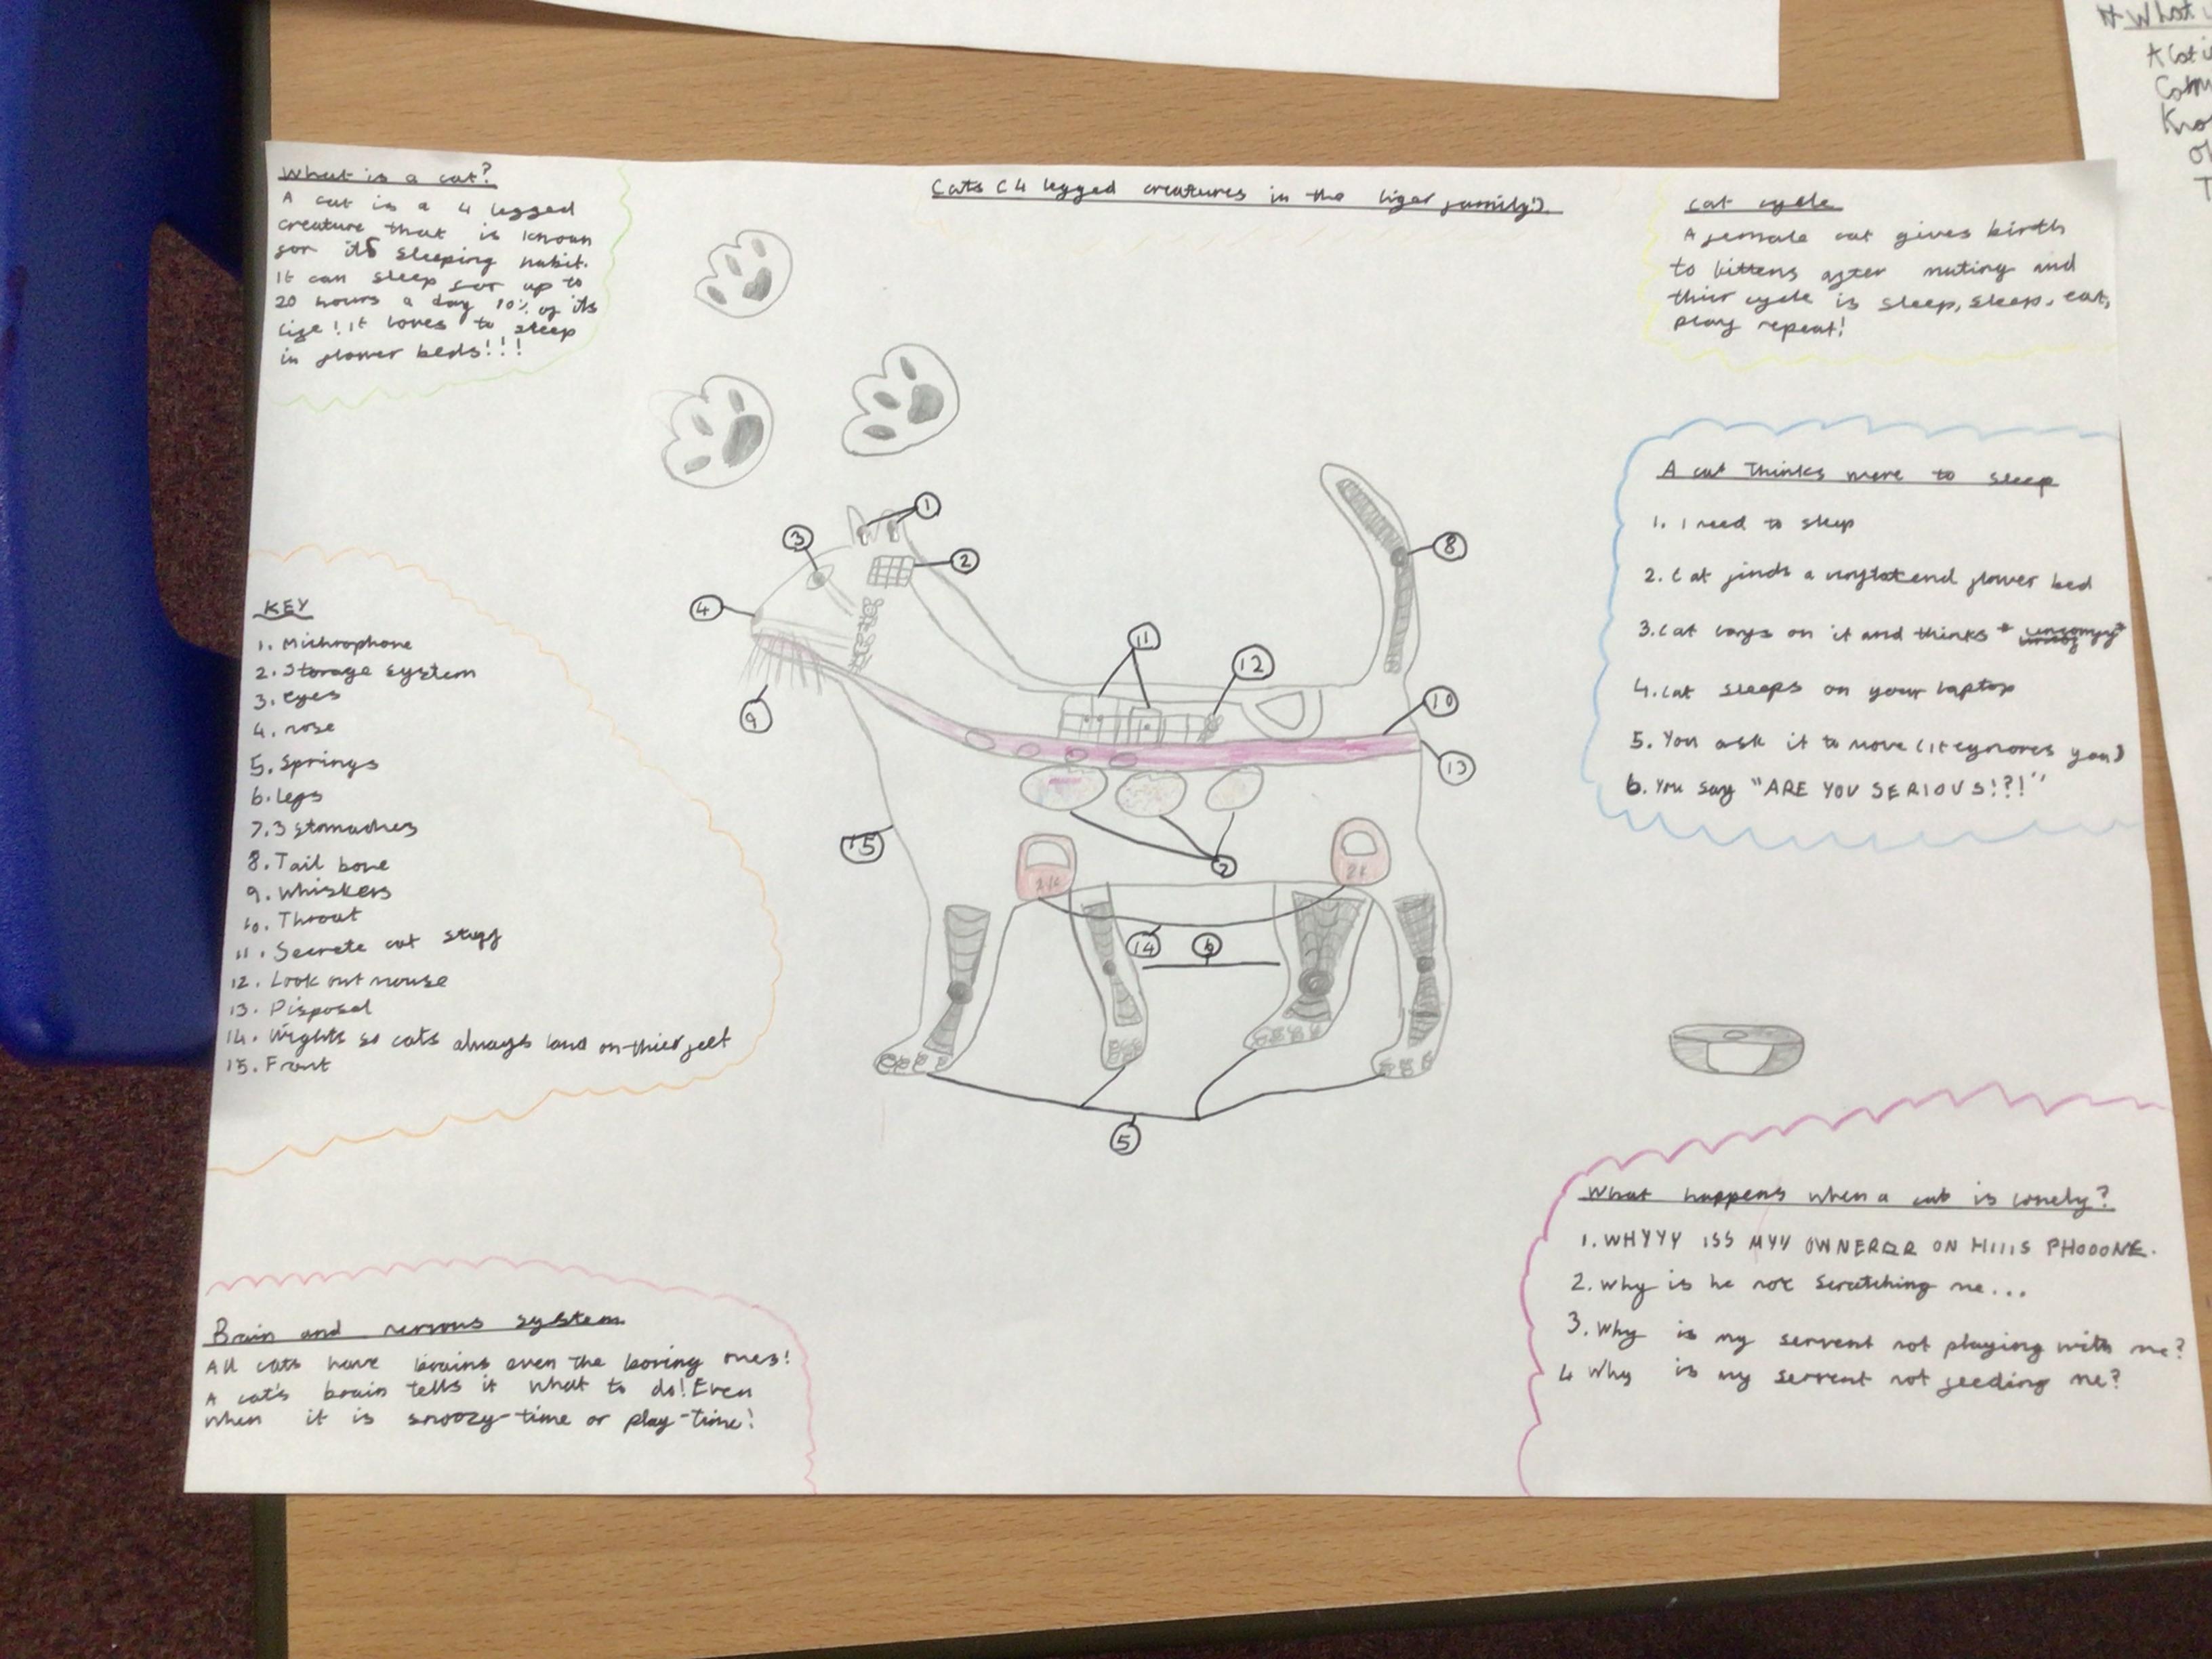 What is a cat?
A cat is a 4 legged
creature that is known
for its sleeping habit.
It can sleep for up to
20 hours a day 70% of its
life! It loves to sleep
in flower beds!!!
Cats (4 legged creatures in the tiger family!)
Cat cycle
A female cat gives birth
to kittens after mating and
thier cycle is sleep, sleep, eat,
play repeat!
A cat Thinks more to sleep
1. I need to sleep
2. Cat finds a flower bed
3. Cat lays on it and thinks * uncomfy*
4. Cat sleeps on your laptop
5. You ask it to move (it eygnores you)
6. You say "ARE YOU SERIOUS!?!"
KEY
1. Michrophone
2. Storage system
3. eyes
4. nose
5. Springs
6. legs
7. 3 stomaches
8. Tail bone
9. whiskers
10. Throat
11. Secrete cat stuff
12. Look out mouse
13. Disposal
14. Wights so cats always land on thier feet
15. Front
1
3
2
4
8
11
12
9
10
13
15
7
14
6
5
Brain and nervous system
All cats have brains even the boring ones!
A cat's brain tells it what to do! Even
when it is snoozy-time or play-time!
What happens when a cat is lonely?
1. WHYYY ISS MYY OWNERRR ON HIIIS PHOOONE.
2. Why is he not scratching me...
3. Why is my servent not playing with me?
4 Why is my servent not feeding me?
# What
A cat i
Com
Kno